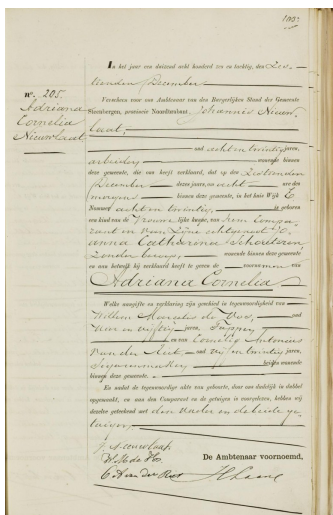 In het jaar een duizend acht honderd zes en tachtig, den Zes-
tienden December
No. 205.
Adriana
Cornelia
Nieuwlaat
Verscheen voor ons Ambtenaar van den Burgerlijken Stand der Gemeente
Steenbergen, provincie Noordbrabant, Johannis Nieuw-
laat,
oud acht en twintig jaren,
arbeider, wonende binnen
deze gemeente, die ons heeft verklaard, dat op den Zestienden
December dezes jaars, om acht ure des
morgens binnen deze gemeente, in het huis Wijk E
Nommer acht en twintig, is geboren
een kind van de Vrouwelijke kunne, van hem Compa-
rant en van zijne echtgenoot Jo-
anna Catharina
zonder beroep, wonende binnen deze gemeente
en aan hetwelk hij verklaard heeft te geven de voornamen van
Adriana Cornelia
Welke aangifte en verklaring zijn geschied in tegenwoordigheid van
Willem Marcelis de Vos, oud
vier en vijftig jaren, Tapper
en van Cornelis Antonius
van der Riet oud vijf en twintig jaren,
Sigarenmaker beiden wonende
binnen deze gemeente.
En nadat de tegenwoordige akte van geboorte, daar van dadelijk in dubbel
opgemaakt, en aan den Comparant en de getuigen is voorgelezen, hebben wij
dezelve geteekend met den Vader en de beide ge-
tuigen.
J. Nieuwlaat
W. M. de Vos
C A van der Riet
De Ambtenaar voornoemd,